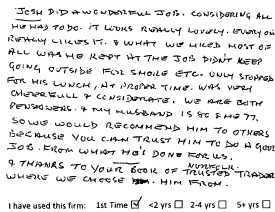 JOSH DID A WONDERFULL JOB. CONSIDERING ALL
HE HAD TO DO. IT LOOKS REALLY LOVELY. EVERYONE
REALLY LIKES IT. & WHAT WE LIKED MOST OF
ALL WAS HE KEPT AT THE JOB DIDN'T KEEP
GOING OUTSIDE FOR SMOKE ETC. ONLY STOPPED
FOR HIS LUNCH, AT PROPER TIME. WAS VERY
CHEERFULL & CONSIDERATE. WE ARE BOTH
PENSIONERS. & MY HUSBAND IS 80 & ME 77.
SO WE WOULD RECOMMEND HIM TO OTHERS
BECAUSE YOU CAN TRUST HIM TO DO A GOOD
JOB. FROM WHAT HE'S DONE FOR US.
& THANKS TO YOUR NORFOLK BOOK OF TRUSTED TRADER
WHERE WE CHOOSE HIM FROM.
I have used this firm: 1st Time <2 yrs 2-4 yrs 5+ yrs